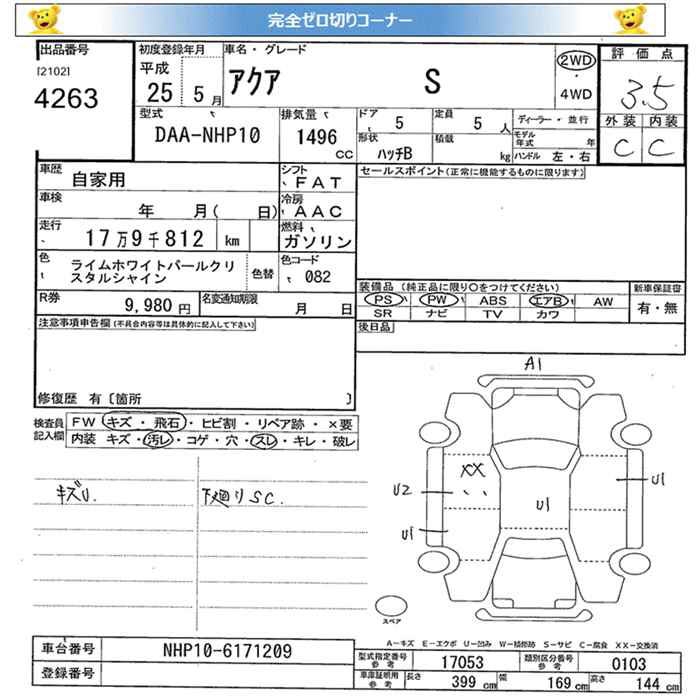 完全ゼロ切りコーナー
出品番号
[2102]
4263
初度登録年月
平成
25 5 月
車名・グレード
アクア S
2WD
・
4WD
評価点
3.5
外装 内装
C C
型式
DAA-NHP10
排気量
1496
CC
ドア
5
定員
5 人
ディーラー・並行
モデル
年式 年
形状
ハッチB
積載
kg
ハンドル 左・右
車歴
自家用
シフト
FAT
車検
年 月( 日)
冷房
AAC
走行
17万9千812 km
燃料
ガソリン
色
ライムホワイトパールクリ
スタルシャイン
色替
色コード
082
R券
9,980 円
名変通知期限
月 日
セールスポイント(正常に機能するものに限ります)
装備品(純正品に限り○をつけてください)
PS PW ABS エアB AW
SR ナビ TV カワ
新車保証書
有・無
後日品
注意事項申告欄(不具合内容等は具体的に記入して下さい)
修復歴 有〔箇所 〕
検査員
記入欄
FW キズ・飛石・ヒビ割・リペア跡・×要
内装 キズ・汚レ・コゲ・穴・スレ・キレ・破レ
キズU.
下廻りSC.
A1
XX
U2
U1
U1
U1
スペア
A-キズ E-エクボ U-凹み W-補修跡 S-サビ C-腐食 XX-交換済
車台番号
NHP10-6171209
登録番号
型式指定番号
参考
17053
類別区分番号
参考
0103
車庫証明用
参考
長さ
399 cm
幅
169 cm
高さ
144 cm